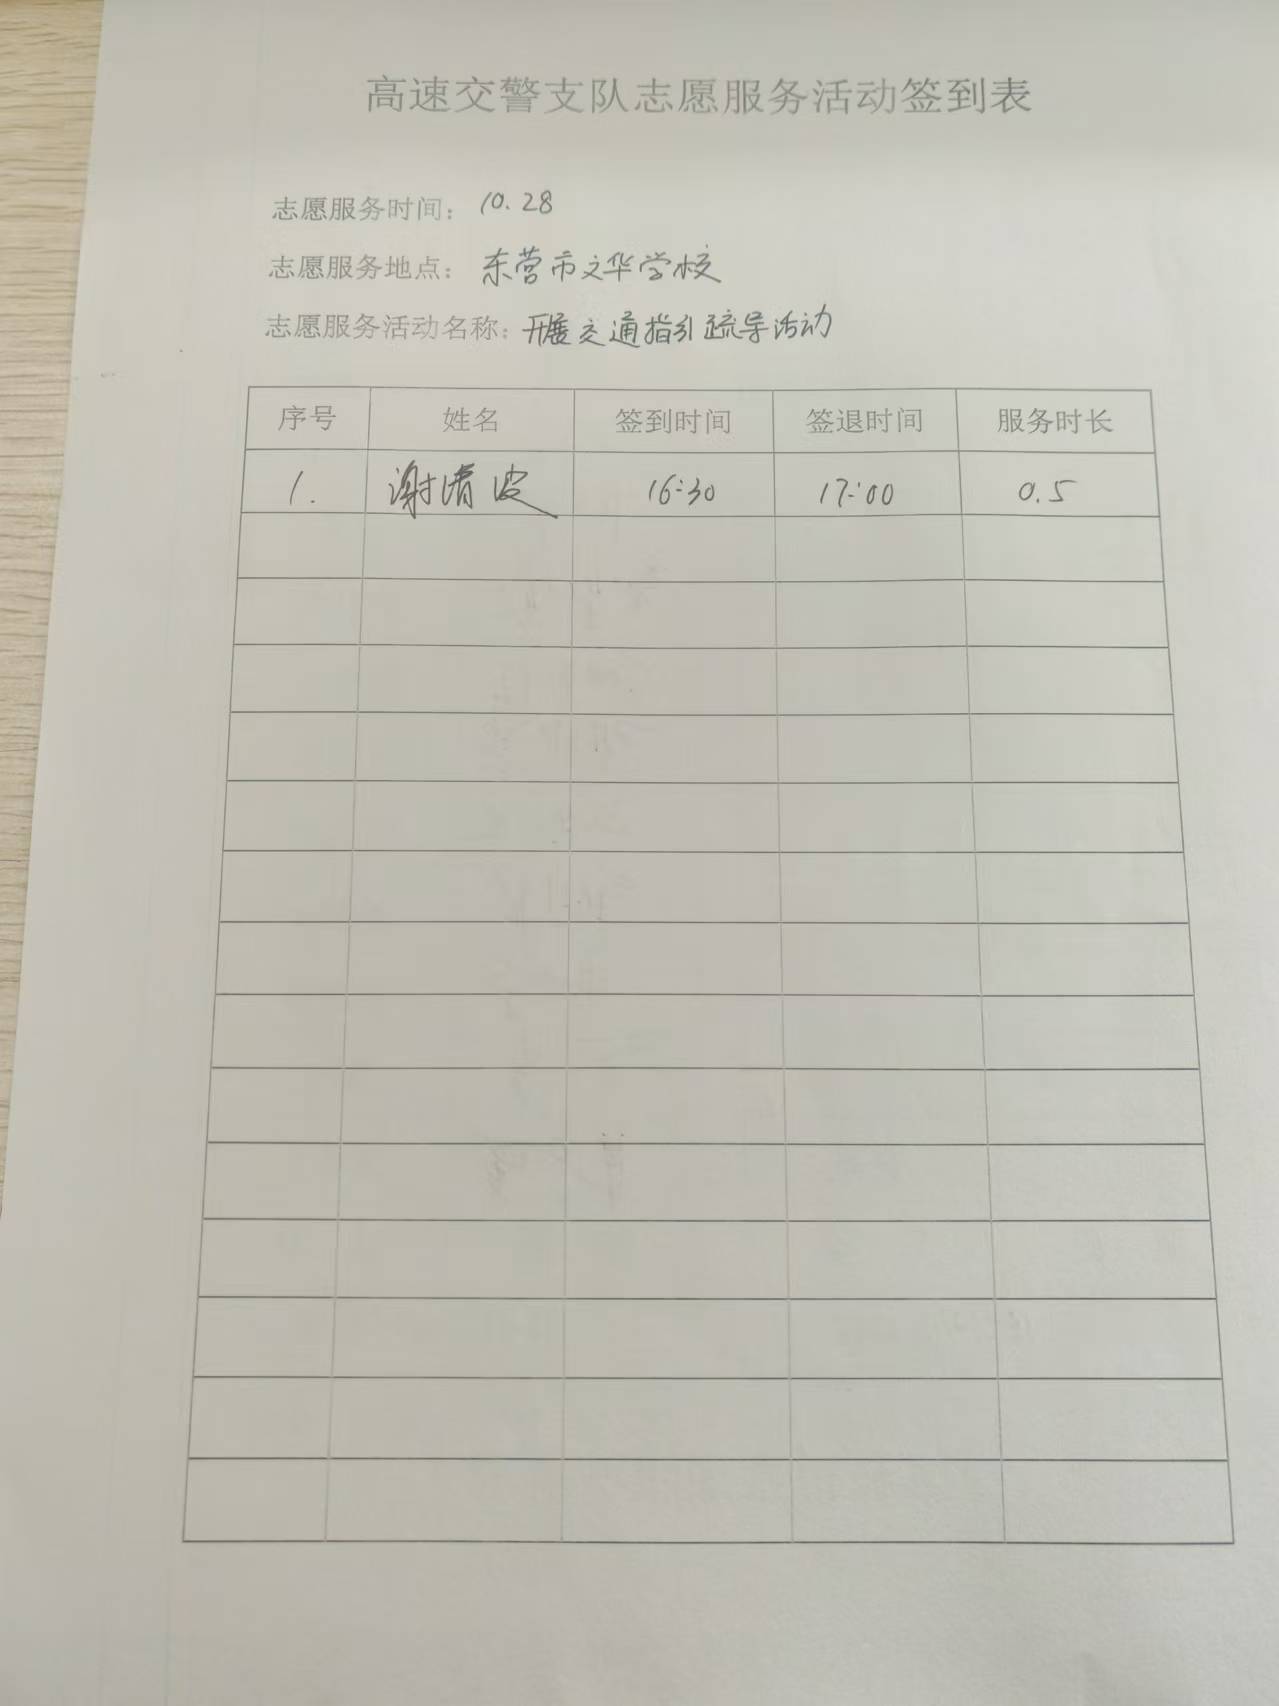 高速交警支队志愿服务活动签到表
志愿服务时间：10.28
志愿服务地点：东营市文华学校
志愿服务活动名称：开展交通指引疏导活动
序号 姓名 签到时间 签退时间 服务时长
1. 谢清波 16:30 17:00 0.5